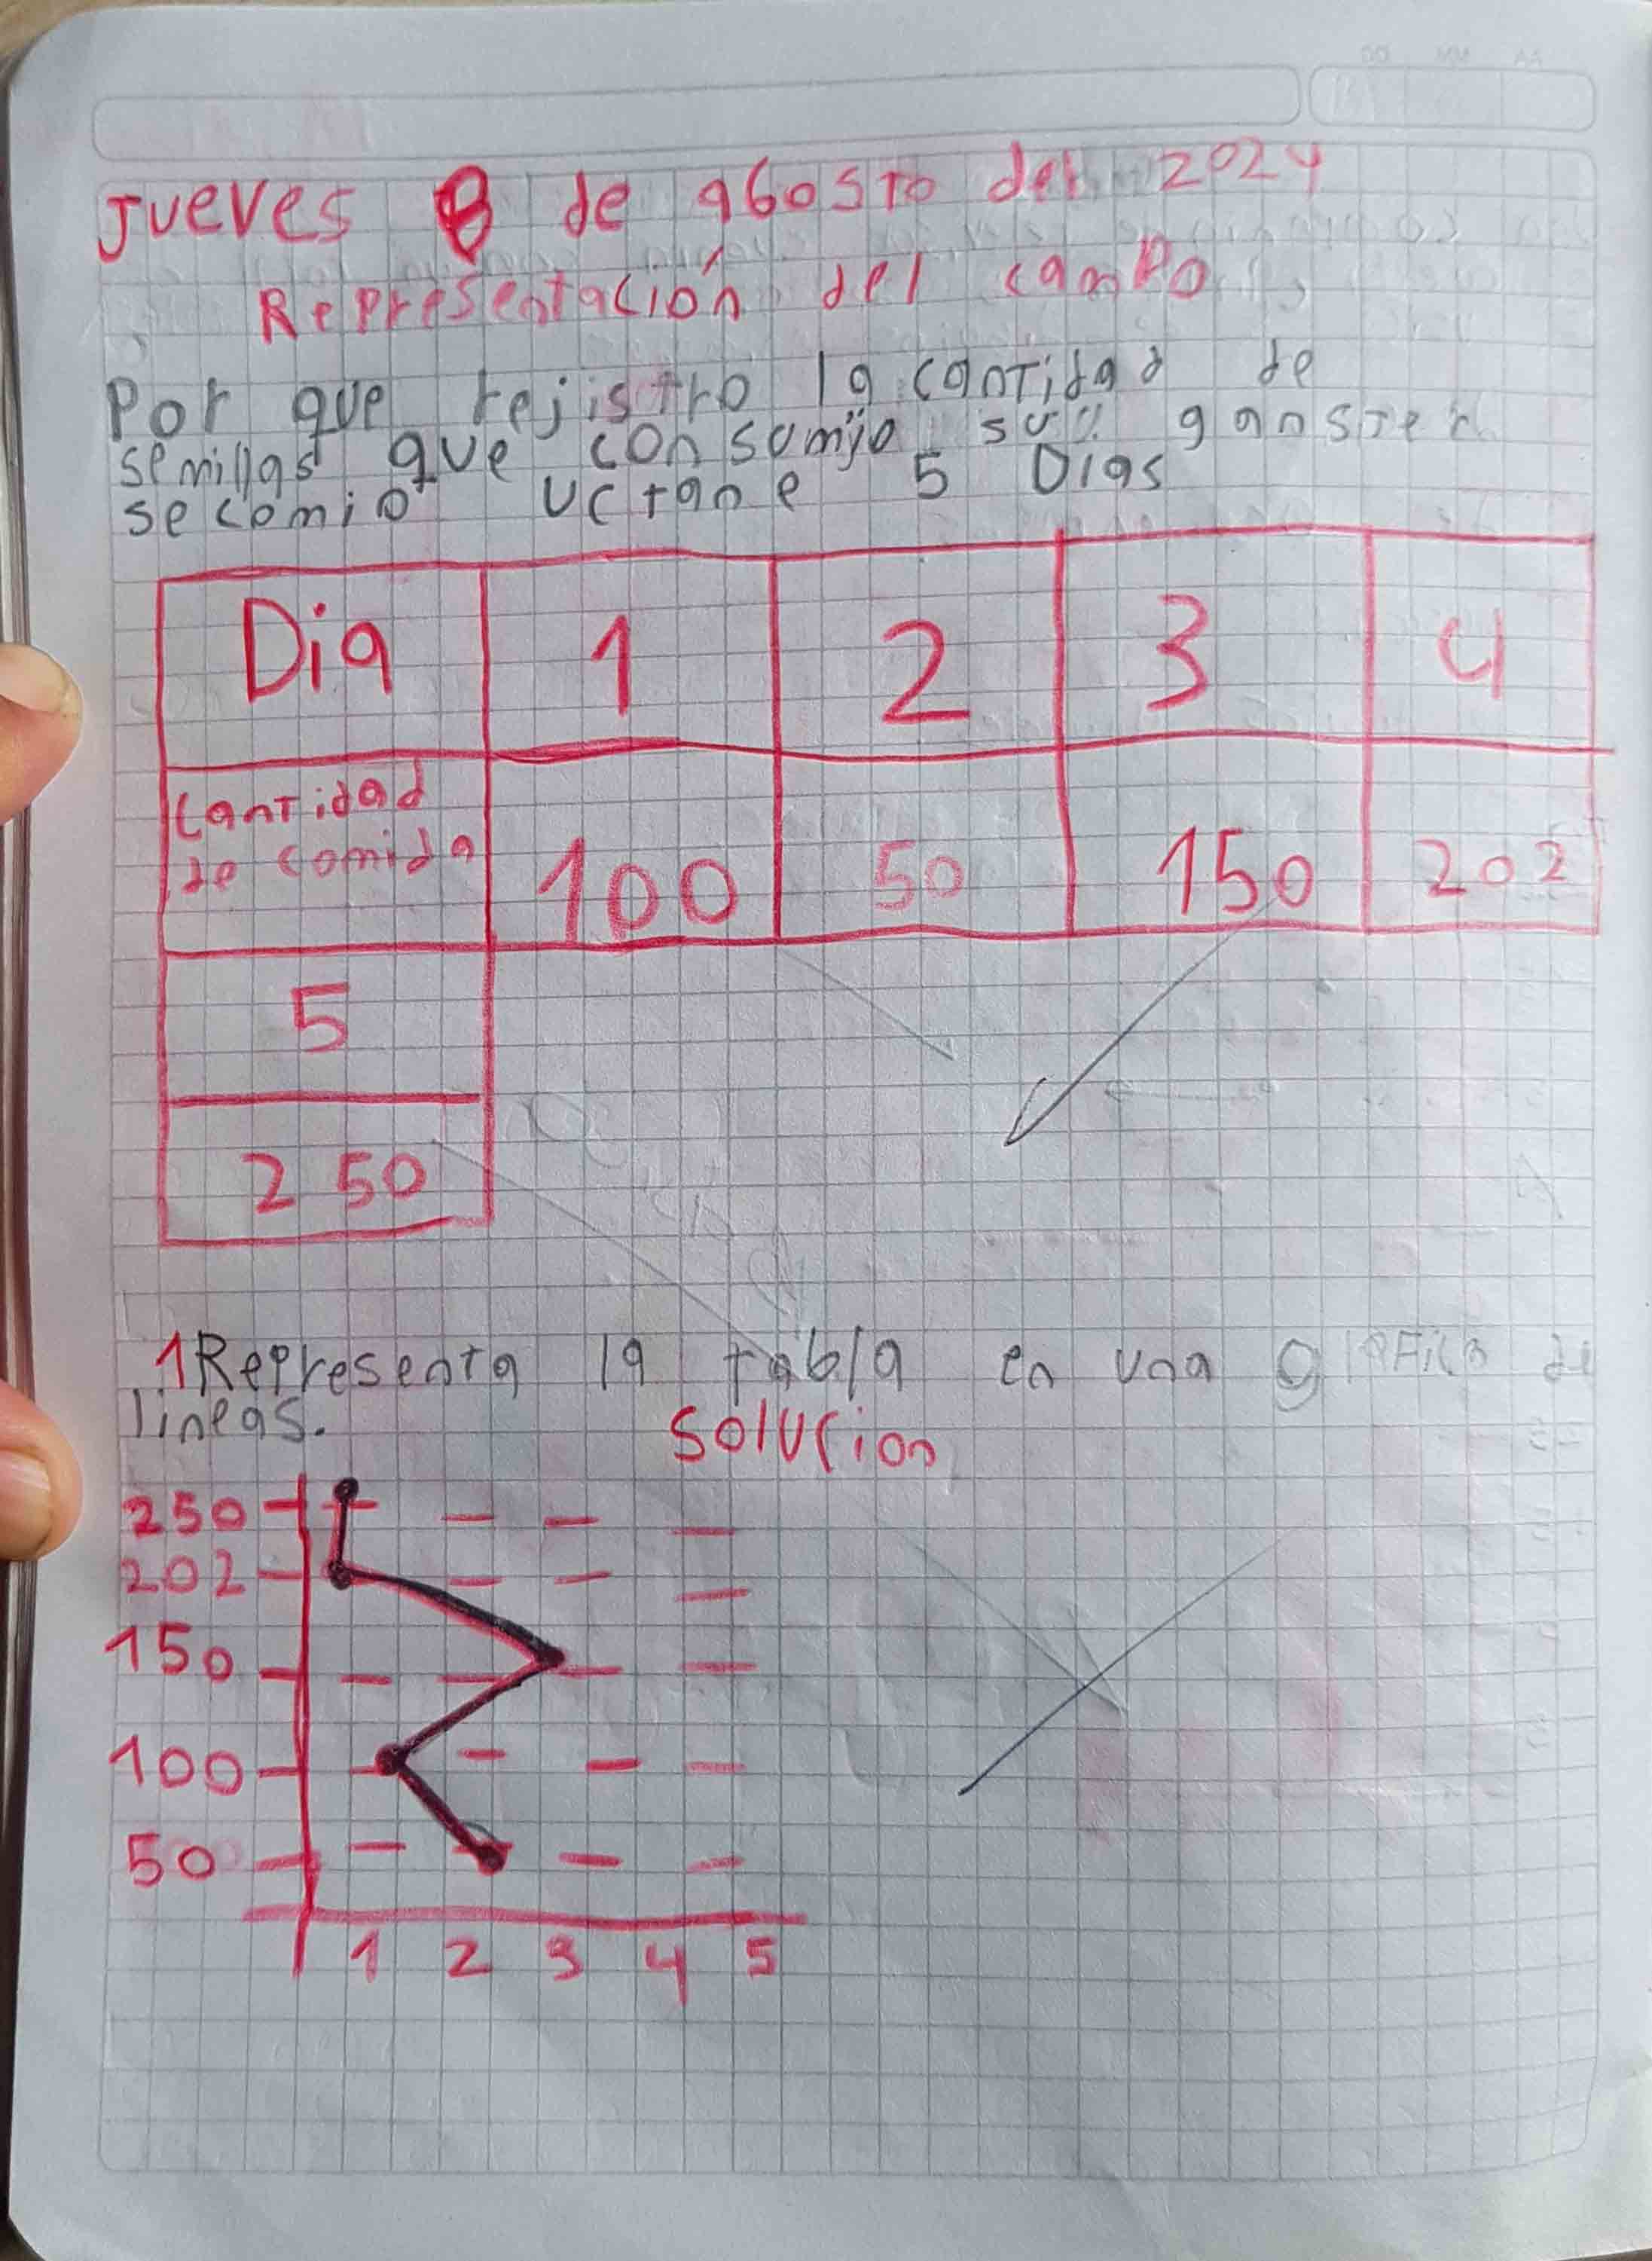 Jueves 8 de agosto del 2024
Representación del campo
Por que rejistro la cantidad de
semillas que consumjo su ganster
se comio uctane 5 Dias
Dia 1 2 3 4
Cantidad
de comida 100 50 150 202
5
2 50
1 Representa la tabla en una grafica de
lineas.
Solucion
250
202
150
100
50
1 2 3 4 5